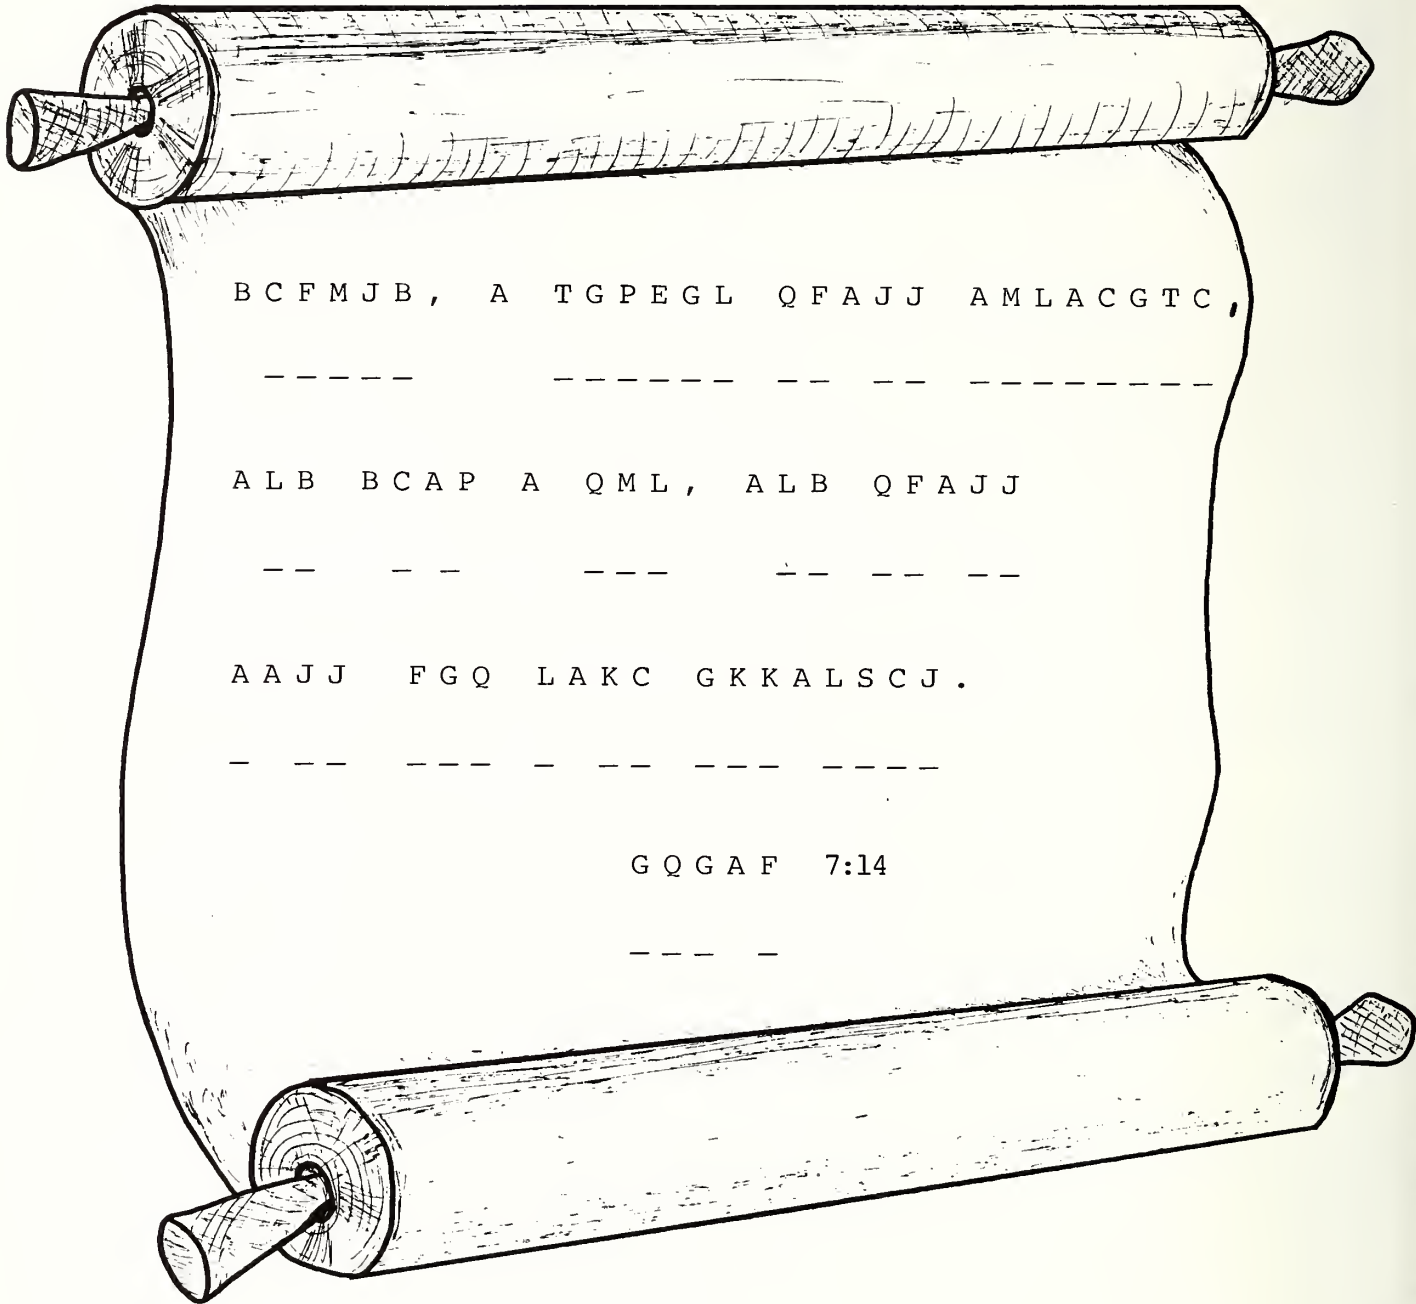 BCFMJB, A TGPEGL QFAJJ AMLACGTC,
_____ ______ __ __ ________
ALB BCAP A QML, ALB QFAJJ
__ _ _ ___ __ __ __
AAJJ FGQ LAKC GKKALSCJ.
_ __ ___ _ __ ___ ____
GQGAF 7:14
___ _